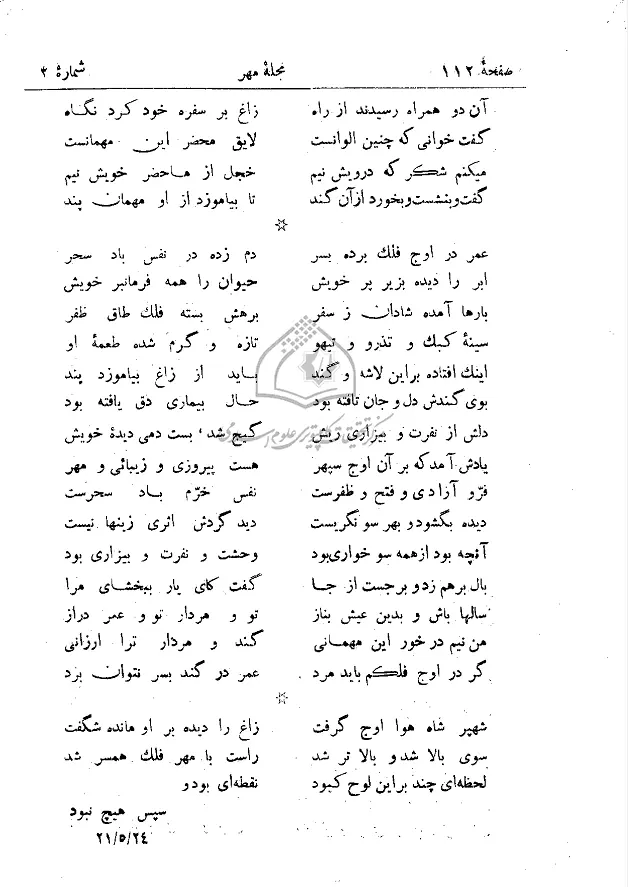 صفحهٔ ۱۱۲ مجلهٔ مهر شمارهٔ ۴
آن دو همراه رسیدند از راه زاغ بر سفره خود کرد نگاه
گفت خوانی که چنین الوانست لایق محضر این مهمانست
میکنم شکر که درویش نیم خجل از ماحضر خویش نیم
گفت و بنشست و بخورد از آن گند تا بیاموزد از او مهمان پند
☆
عمر در اوج فلك برده بسر دم زده در نفس باد سحر
ابر را دیده بزیر پر خویش حیوان را همه فرمانبر خویش
بارها آمده شادان ز سفر برهش بسته فلك طاق ظفر
سینهٔ کبك و تذرو و تیهو تازه و گرم شده طعمهٔ او
اینك افتاده بر این لاشه و گند باید از زاغ بیاموزد پند
بوی گندش دل و جان تافته بود حال بیماری دق یافته بود
دلش از نفرت و بیزاری ریش گیج شد، بست دمی دیدهٔ خویش
یادش آمد که بر آن اوج سپهر هست پیروزی و زیبائی و مهر
فرّ و آزادی و فتح و ظفرست نفس خرّم باد سحرست
دیده بگشود و بهر سو نگریست دید گردش اثری زینها نیست
آنچه بود از همه سو خواری بود وحشت و نفرت و بیزاری بود
بال برهم زد و برجست از جا گفت کای یار ببخشای مرا
سالها باش و بدین عیش بناز تو و مردار تو و عمر دراز
من نیم در خور این مهمانی گند و مردار ترا ارزانی
گر در اوج فلکم باید مرد عمر در گند بسر نتوان برد
☆
شهپر شاه هوا اوج گرفت زاغ را دیده بر او مانده شگفت
سوی بالا شد و بالا تر شد راست با مهر فلك همسر شد
لحظه‌ای چند بر این لوح کبود نقطه‌ای بود و
سپس هیچ نبود
۲۱/۵/۲۴